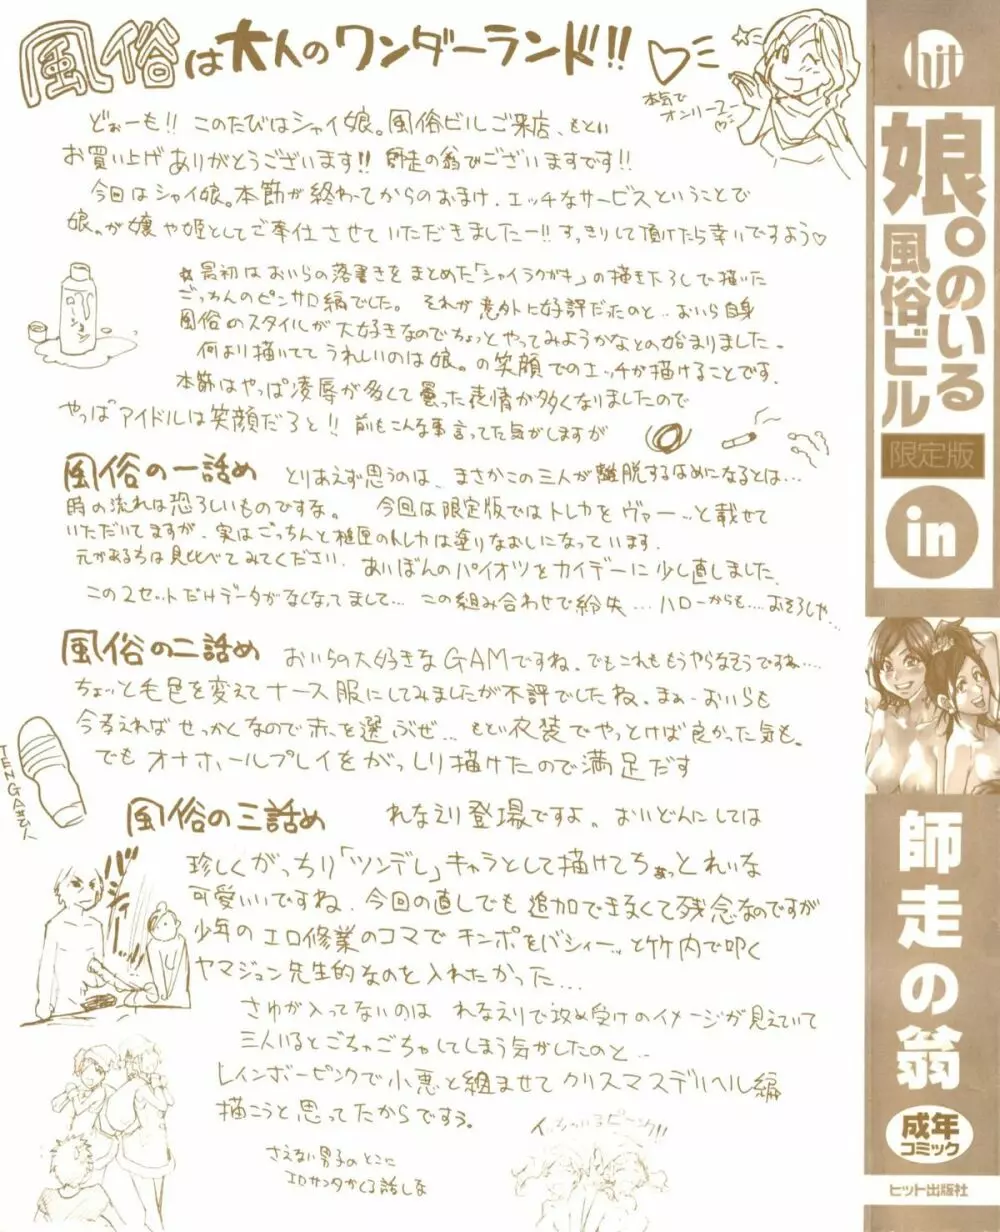 風俗は大人のワンダーランド!!
本気で
オンリーユー
どぉーも!! このたびはシャイ娘。風俗ビルご来店、もとい
お買い上げありがとうございます!! 師走の翁でございますです!!
今回はシャイ娘。本節が終わってからのおまけ、エッチなサービスということで
娘。が嬢や姫としてご奉仕させていただきましたー!! すっきりして頂けたら幸いですよう♡
ローション
最初はおいらの落書きをまとめた「シャイラクガキ」の描き下ろしで描いた
ごっちんのピンサロ編でした。それが意外に好評だったのと‥おいら自身
風俗のスタイルが大好きなのでちょっとやってみようかなとの始まりました。
何より描いててうれしいのは娘。の笑顔でのエッチが描けることです。
本節はやっぱ凌辱が多くて曇った表情が多くなりましたので
やっぱアイドルは笑顔だろと!! 前もこんな事言ってた気がしますが
風俗の一話め とりあえず思うのは、まさかこの三人が離脱するはめになるとは…
時の流れは恐ろしいものですな。 今回は限定版ではトレカをヴァーーッと載せて
いただいてますが、実はごっちんと のトレカは塗りなおしになっています。
元がある方は見比べてみてください。あいぼんのパイオツをカイデーに少し直しました。
この2セットだけデータがなくなってまして… この組み合わせで紛失… ハローからも…おそろしや…
風俗の二話め おいらの大好きなGAMですね。でもこれももうやらなそうですね….
ちょっと毛色を変えてナース服にしてみましたが不評でしたね。まぁ、おいらも
今考えればせっかくなので赤を選ぶぜ… もとい衣装でやっとけば良かった気も。
でもオナホールプレイをがっしり描けたので満足だす
TENGA芸人
風俗の三話め れなえり登場ですよ。おいどんにしては
珍しくがっちり「ツンデレ」キャラとして描けてちょっとれいな
可愛いいですね。今回の直しでも追加できなくて残念なのですが
少年のエロ修業のコマでチンポをバシィーッと竹内で叩く
ヤマジュン先生的なのを入れたかった…
さゆが入ってないのは れなえりで攻め受けのイメージが見えていて
三人いるとごちゃごちゃしてしまう気がしたのと‥
レインボーピンクで小悪と組ませてクリスマスデルヘル編
描こうと思ってたからですう。
さえない男子のとこに
エロサンタがくる話しな
hit
娘。のいる
風俗ビル
限定版
in
師走の翁
成年
コミック
ヒット出版社